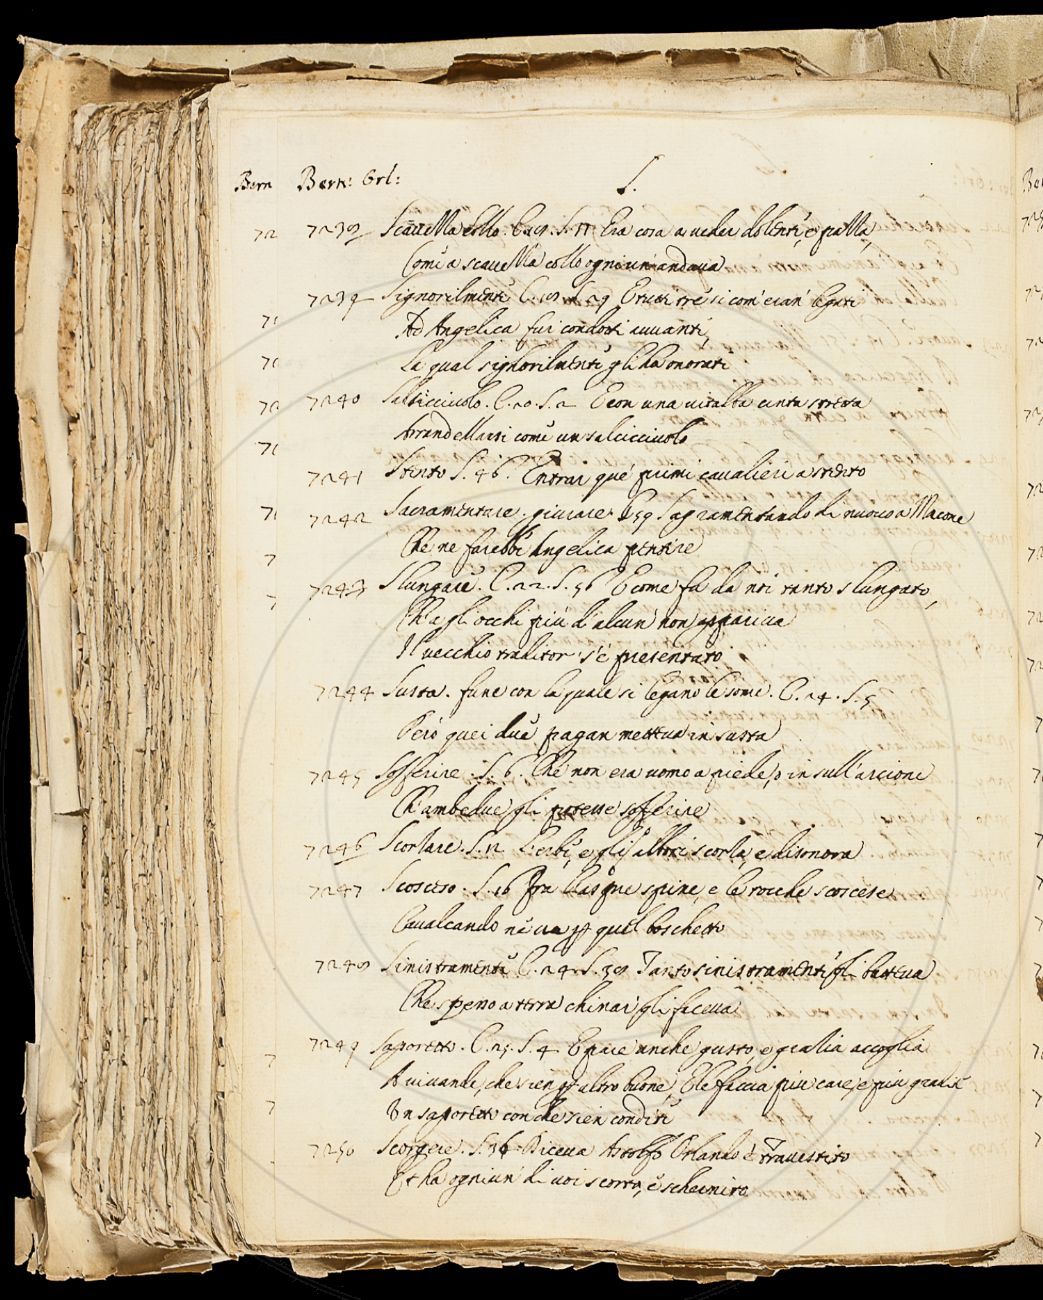 Bern Bern: Orl: S.
72 7238 Scavezzacollo. C. 19. S. 17 Era cosa a veder dolente, e pazza,
Com' a scavezzacollo ogniun andava
7239 Signorilmente C. 19. S. 29 E tutti tre si com' eran legati
Ad Angelica fur condotti avanti,
La qual signorilmente gli ha onorati
7240 Salsicciuolo. C. 20. S. 2 E con una ritorta cinta stretta
Arrandellarsi come un salsicciuolo
7241 Stento S. 46. Entrar que' primi cavalieri a stento
7242 Sacramentare. giurare S. 59 Sagramentando di nuovo a Macone
Che ne farebbe Angelica pentire
7243 Slungare. C. 22. S. 56 E come fu da noi tanto slungato,
Ch' agli occhi più d' alcun' non apparia
Il vecchio traditor s' è presentato
7244 Susta. fune con la quale si legano le some. C. 24. S. 5
Però quei due pagan mettea in susta
7245 Sofferire. S. 6. Che non era uomo a piede, o in sull' arcione
Ch' ambedue gli potesse sofferire
7246 Scorlare. S. 12 e gli albori scorla, e disonora
7247 Scosceso. S. 16 Fra l' aspre spine, e le rocche scoscese
Cavalcando ne va per quel boschetto
7248 Sinistramente C. 24. S. 39 Tanto sinistramente gli battea
Che spesso a terra chinar gli facea
7249 Saporetto. C. 25. S. 4 E pare anche gusto, e grazia accoglia
A vivande, che sien per altro buone, E le faccia più care, e più gradite
Un saporetto con che sien condite
7250 Scorgere. S. 36 Diceva Astolfo Orlando è travestito
Et ha ogniun di voi scorto, e schernito